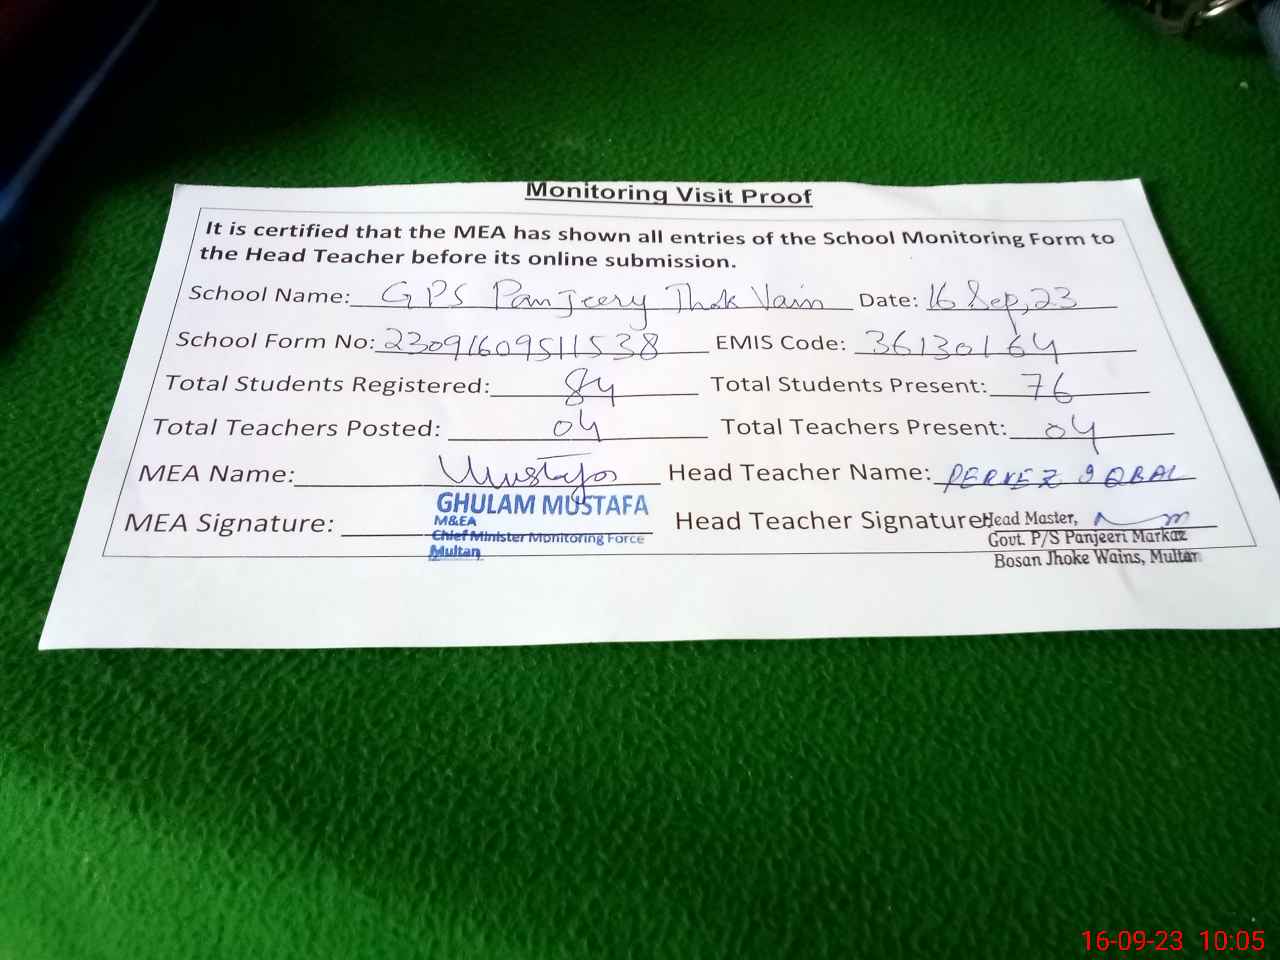 Monitoring Visit Proof
It is certified that the MEA has shown all entries of the School Monitoring Form to
the Head Teacher before its online submission.
School Name: GPS Panjeery Thok Vain Date: 16 Sep, 23
School Form No: 23091609511538 EMIS Code: 36130164
Total Students Registered: 84 Total Students Present: 76
Total Teachers Posted: 04 Total Teachers Present: 04
MEA Name: Mustafa Head Teacher Name: PERVEZ IQBAL
GHULAM MUSTAFA
M&EA
MEA Signature: Head Teacher Signature: Head Master,
Chief Minister Monitoring Force Govt. P/S Panjeeri Markaz
Multan Bosan Jhoke Wains, Multan
16-09-23 10:05